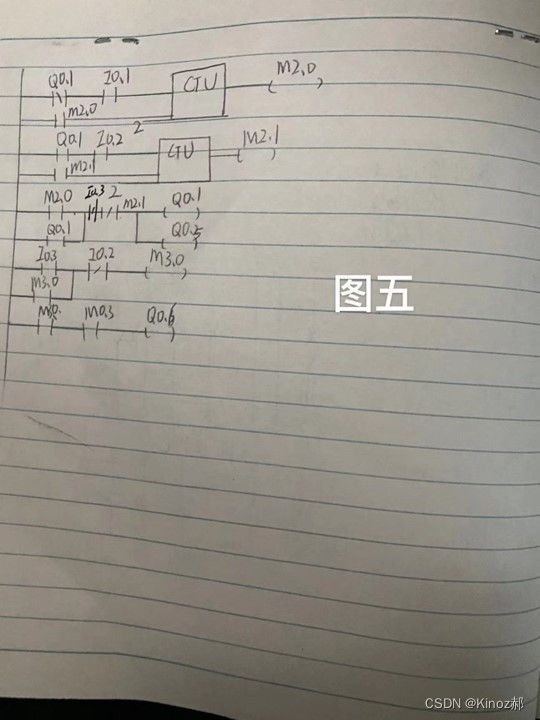 Q0.1 I0.1 CTU M2.0
M2.0
2
Q0.1 I0.2 CTU M2.1
M2.1
M2.0 I0.3 2 M2.1 Q0.1
Q0.1 Q0.5
I0.3 I0.2 M3.0
M3.0
M0.3 Q0.6
图五
CSDN @Kinoz郝